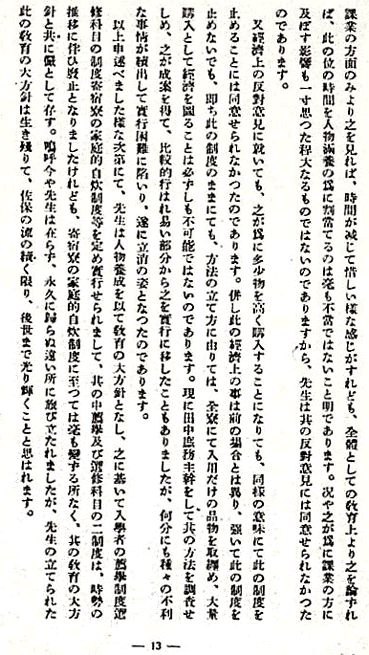 課業の方面のみより之を見れば、時間が減じて惜しい樣な感じがすれども、全體としての敎育上より之を論ずれ
ば、此の位の時間を人物涵養の爲に割當てるのは毫も不當ではないこと明であります。況や之が爲に課業の方に
及ぼす影響も一寸思つた程大なるものではないのでありますから、先生は其の反對意見には同意せられなかつた
のであります。
又經濟上の反對意見に就いても、之が爲に多少物を高く購入することになりても、同樣の意味にて此の制度を
止めることには同意せられなかつたのであります。併し此の經濟上の事は前の場合とは異り、强いて此の制度を
止めないでも、卽ち此の制度のまゝにても、方法の立て方に由りては、全寮にて入用だけの品物を取纒め、大量
購入として經濟を圖ることは必ずしも不可能ではないのであります。現に田中庶務主幹をして其の方法を調査せ
しめ、之が成案を得て、比較的行はれ易い部分から之を實行に移したこともありましたが、何分にも種々の不利
な事情が續出して實行困難に陷いり、遂に立消の姿となつたのであります。
以上申述べました樣な次第にて、先生は人物養成を以て敎育の大方針となし、之に基いて入學者の薦擧制度選
修科目の制度寄宿寮の家庭的自炊制度等を定め實行せられまして、其の中薦擧及び選修科目の二制度は、時勢の
推移に伴ひ廢止となりましたけれども、寄宿寮の家庭的自炊制度に至つては毫も變する所なく、其の敎育の大方
針と共に儼として存す。嗚呼今や先生は在らず、永久に歸らぬ遠い所に旅び立たれましたが、先生の立てられた
此の敎育の大方針は生き殘りて、佐保の流の續く限り、後世まで光り輝くことと思はれます。
— 13 —